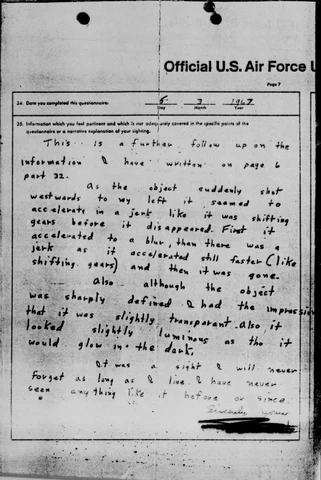 Official U.S. Air Force U
Page 7
34. Date you completed this questionnaire: 5 3 1967
Day Month Year
35. Information which you feel pertinent and which is not adequately covered in the specific points of the
questionnaire or a narrative explanation of your sighting.
This is a further follow up on the
information I have written on page 6
part 32.
As the object suddenly shot
westwards to my left it seemed to
accelerate in a jerk like it was shifting
gears before it disappeared. First it
accelerated to a blur, then there was a
jerk as it accelerated still faster (like
shifting gears) and then it was gone.
Also although the object
was sharply defined I had the impression
that it was slightly transparent. Also it
looked slightly luminous as tho it
would glow in the dark.
It was a sight I will never
forget as long as I live. I have never
seen anything like it before or since.